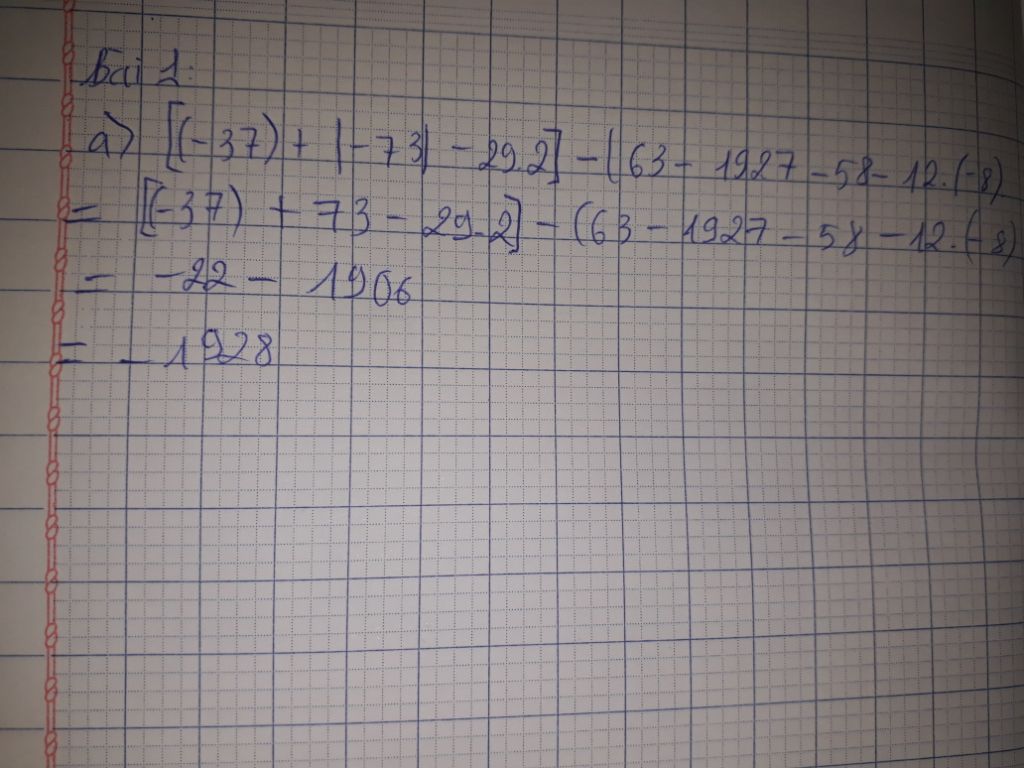 Bài 1:
a) [(-37) + |-73| - 29.2] - (63 - 1927 - 58 - 12.(-8)
= [(-37) + 73 - 29.2] - (63 - 1927 - 58 - 12.(-8)
= -22 - 1906
= -1928